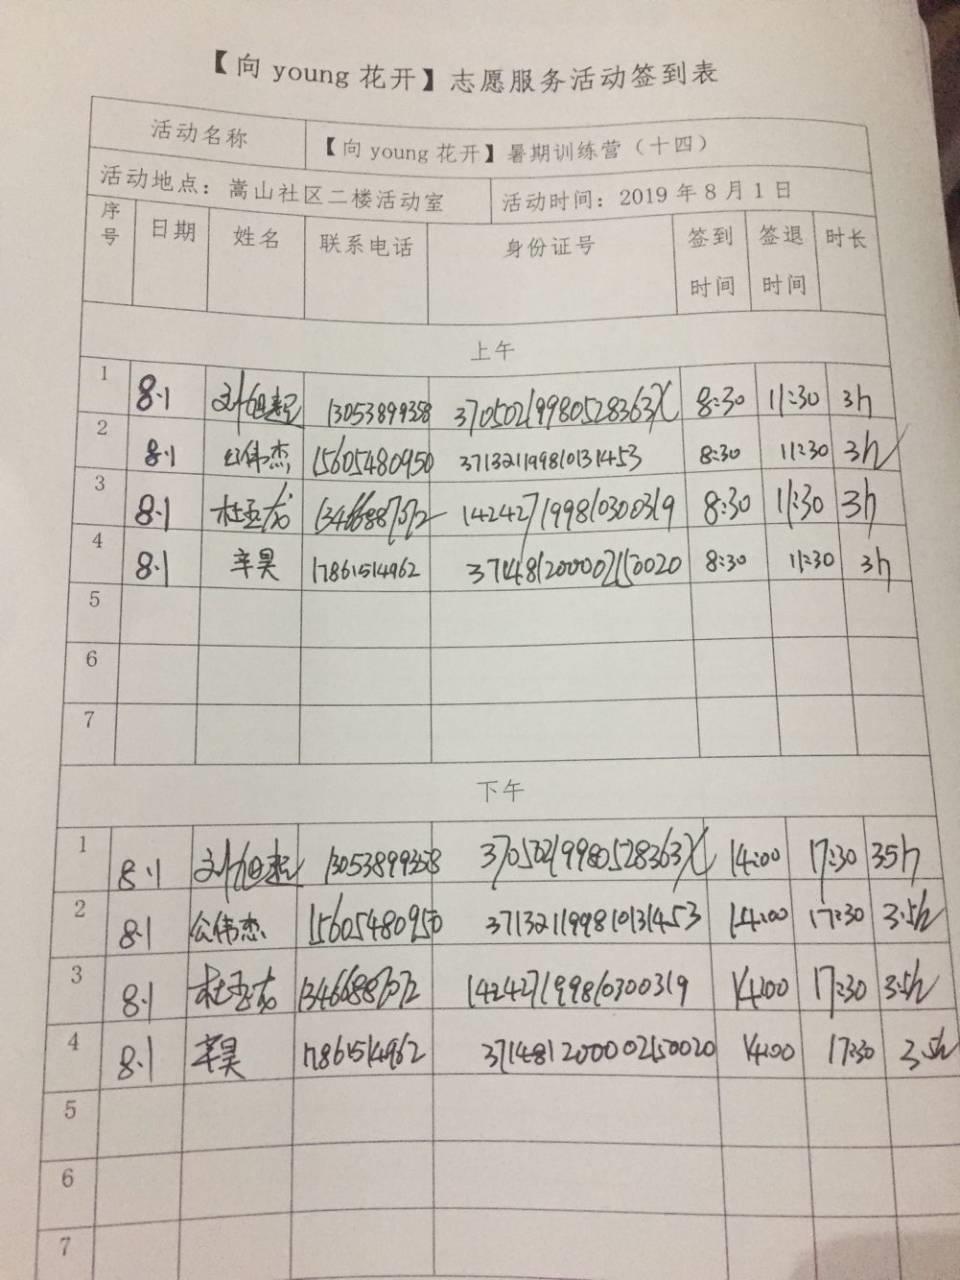 【向 young 花开】志愿服务活动签到表
活动名称 【向 young 花开】暑期训练营（十四）
活动地点：嵩山社区二楼活动室 活动时间：2019 年 8 月 1 日
序号 日期 姓名 联系电话 身份证号 签到时间 签退时间 时长
上午
1 8.1 13053899358 37050219980528363X 8:30 11:30 3h
2 8.1 公伟杰 15605480950 371321199810131453 8:30 11:30 3h
3 8.1 杜玉龙 13466887072 142427199810300319 8:30 11:30 3h
4 8.1 辛昊 17861514962 371481200002150020 8:30 11:30 3h
5
6
7
下午
1 8.1 13053899358 37050219980528363X 14:00 17:30 3.5h
2 8.1 公伟杰 15605480950 371321199810131453 14:00 17:30 3.5h
3 8.1 杜玉龙 13466887072 142427199810300319 14:00 17:30 3.5h
4 8.1 辛昊 17861514962 371481200002150020 14:00 17:30 3.5h
5
6
7